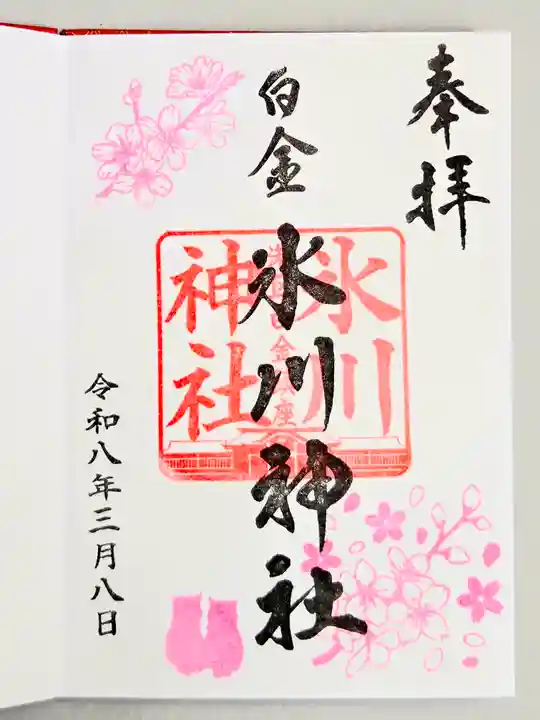 奉拝
白金
氷川神社
氷川
神社
令和八年三月八日